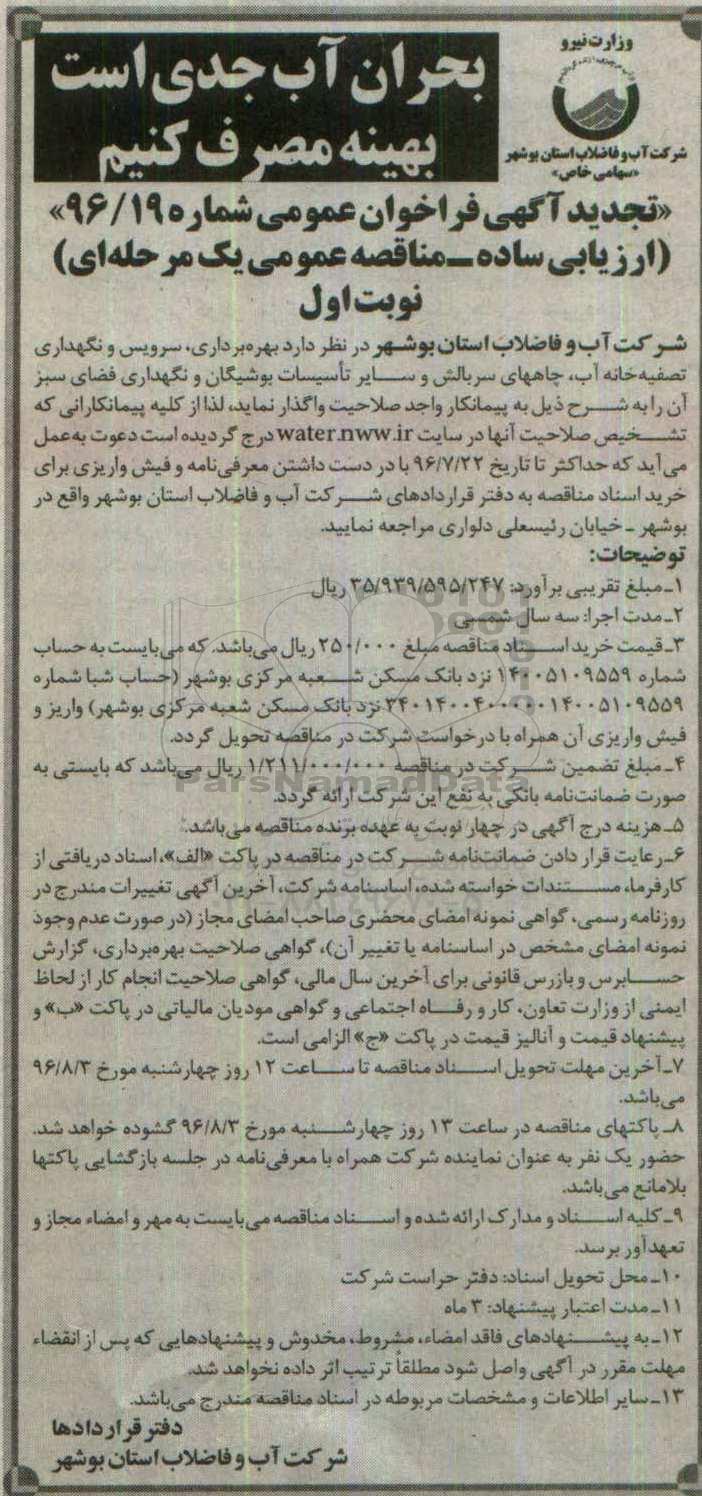 وزارت نیرو
شرکت آب و فاضلاب استان بوشهر
«سهامی خاص»
بحران آب جدی است
بهینه مصرف کنیم
«تجدید آگهی فراخوان عمومی شماره ۹۶/۱۹»
(ارزیابی ساده ـ مناقصه عمومی یک مرحله‌ای)
نوبت اول
شرکت آب و فاضلاب استان بوشهر در نظر دارد بهره‌برداری، سرویس و نگهداری
تصفیه‌خانه آب، چاههای سربالش و سایر تأسیسات بوشیگان و نگهداری فضای سبز
آن را به شرح ذیل به پیمانکار واجد صلاحیت واگذار نماید، لذا از کلیه پیمانکارانی که
تشخیص صلاحیت آنها در سایت water.nww.ir درج گردیده است دعوت به‌عمل
می‌آید که حداکثر تا تاریخ ۹۶/۷/۲۲ با در دست داشتن معرفی‌نامه و فیش واریزی برای
خرید اسناد مناقصه به دفتر قراردادهای شرکت آب و فاضلاب استان بوشهر واقع در
بوشهر ـ خیابان رئیسعلی دلواری مراجعه نمایید.
توضیحات:
۱ـ مبلغ تقریبی برآورد: ۳۵/۹۳۹/۵۹۵/۲۴۷ ریال
۲ـ مدت اجرا: سه سال شمسی
۳ـ قیمت خرید اسناد مناقصه مبلغ ۲۵۰/۰۰۰ ریال می‌باشد. که می‌بایست به حساب
شماره ۱۴۰۰۵۱۰۹۵۵۹ نزد بانک مسکن شعبه مرکزی بوشهر (حساب شبا شماره
نزد بانک مسکن شعبه مرکزی بوشهر) واریز و
فیش واریزی آن همراه با درخواست شرکت در مناقصه تحویل گردد.
۴ـ مبلغ تضمین شرکت در مناقصه ۱/۲۱۱/۰۰۰/۰۰۰ ریال می‌باشد که بایستی به
صورت ضمانت‌نامه بانکی به نفع این شرکت ارائه گردد.
۵ـ هزینه درج آگهی در چهار نوبت به عهده برنده مناقصه می‌باشد.
۶ـ رعایت قرار دادن ضمانت‌نامه شرکت در مناقصه در پاکت «الف»، اسناد دریافتی از
کارفرما، مستندات خواسته شده، اساسنامه شرکت، آخرین آگهی تغییرات مندرج در
روزنامه رسمی، گواهی نمونه امضای محضری صاحب امضای مجاز (در صورت عدم وجود
نمونه امضای مشخص در اساسنامه یا تغییر آن)، گواهی صلاحیت بهره‌برداری، گزارش
حسابرس و بازرس قانونی برای آخرین سال مالی، گواهی صلاحیت انجام کار از لحاظ
ایمنی از وزارت تعاون، کار و رفاه اجتماعی و گواهی مودیان مالیاتی در پاکت «ب» و
پیشنهاد قیمت و آنالیز قیمت در پاکت «ج» الزامی است.
۷ـ آخرین مهلت تحویل اسناد مناقصه تا ساعت ۱۲ روز چهارشنبه مورخ ۹۶/۸/۳
می‌باشد.
۸ـ پاکتهای مناقصه در ساعت ۱۳ روز چهارشنبه مورخ ۹۶/۸/۳ گشوده خواهد شد.
حضور یک نفر به عنوان نماینده شرکت همراه با معرفی‌نامه در جلسه بازگشایی پاکتها
بلامانع می‌باشد.
۹ـ کلیه اسناد و مدارک ارائه شده و اسناد مناقصه می‌بایست به مهر و امضاء مجاز و
تعهدآور برسد.
۱۰ـ محل تحویل اسناد: دفتر حراست شرکت
۱۱ـ مدت اعتبار پیشنهاد: ۳ ماه
۱۲ـ به پیشنهادهای فاقد امضاء، مشروط، مخدوش و پیشنهادهایی که پس از انقضاء
مهلت مقرر در آگهی واصل شود مطلقاً ترتیب اثر داده نخواهد شد.
۱۳ـ سایر اطلاعات و مشخصات مربوطه در اسناد مناقصه مندرج می‌باشد.
دفتر قراردادها
شرکت آب و فاضلاب استان بوشهر
ParsNamadData